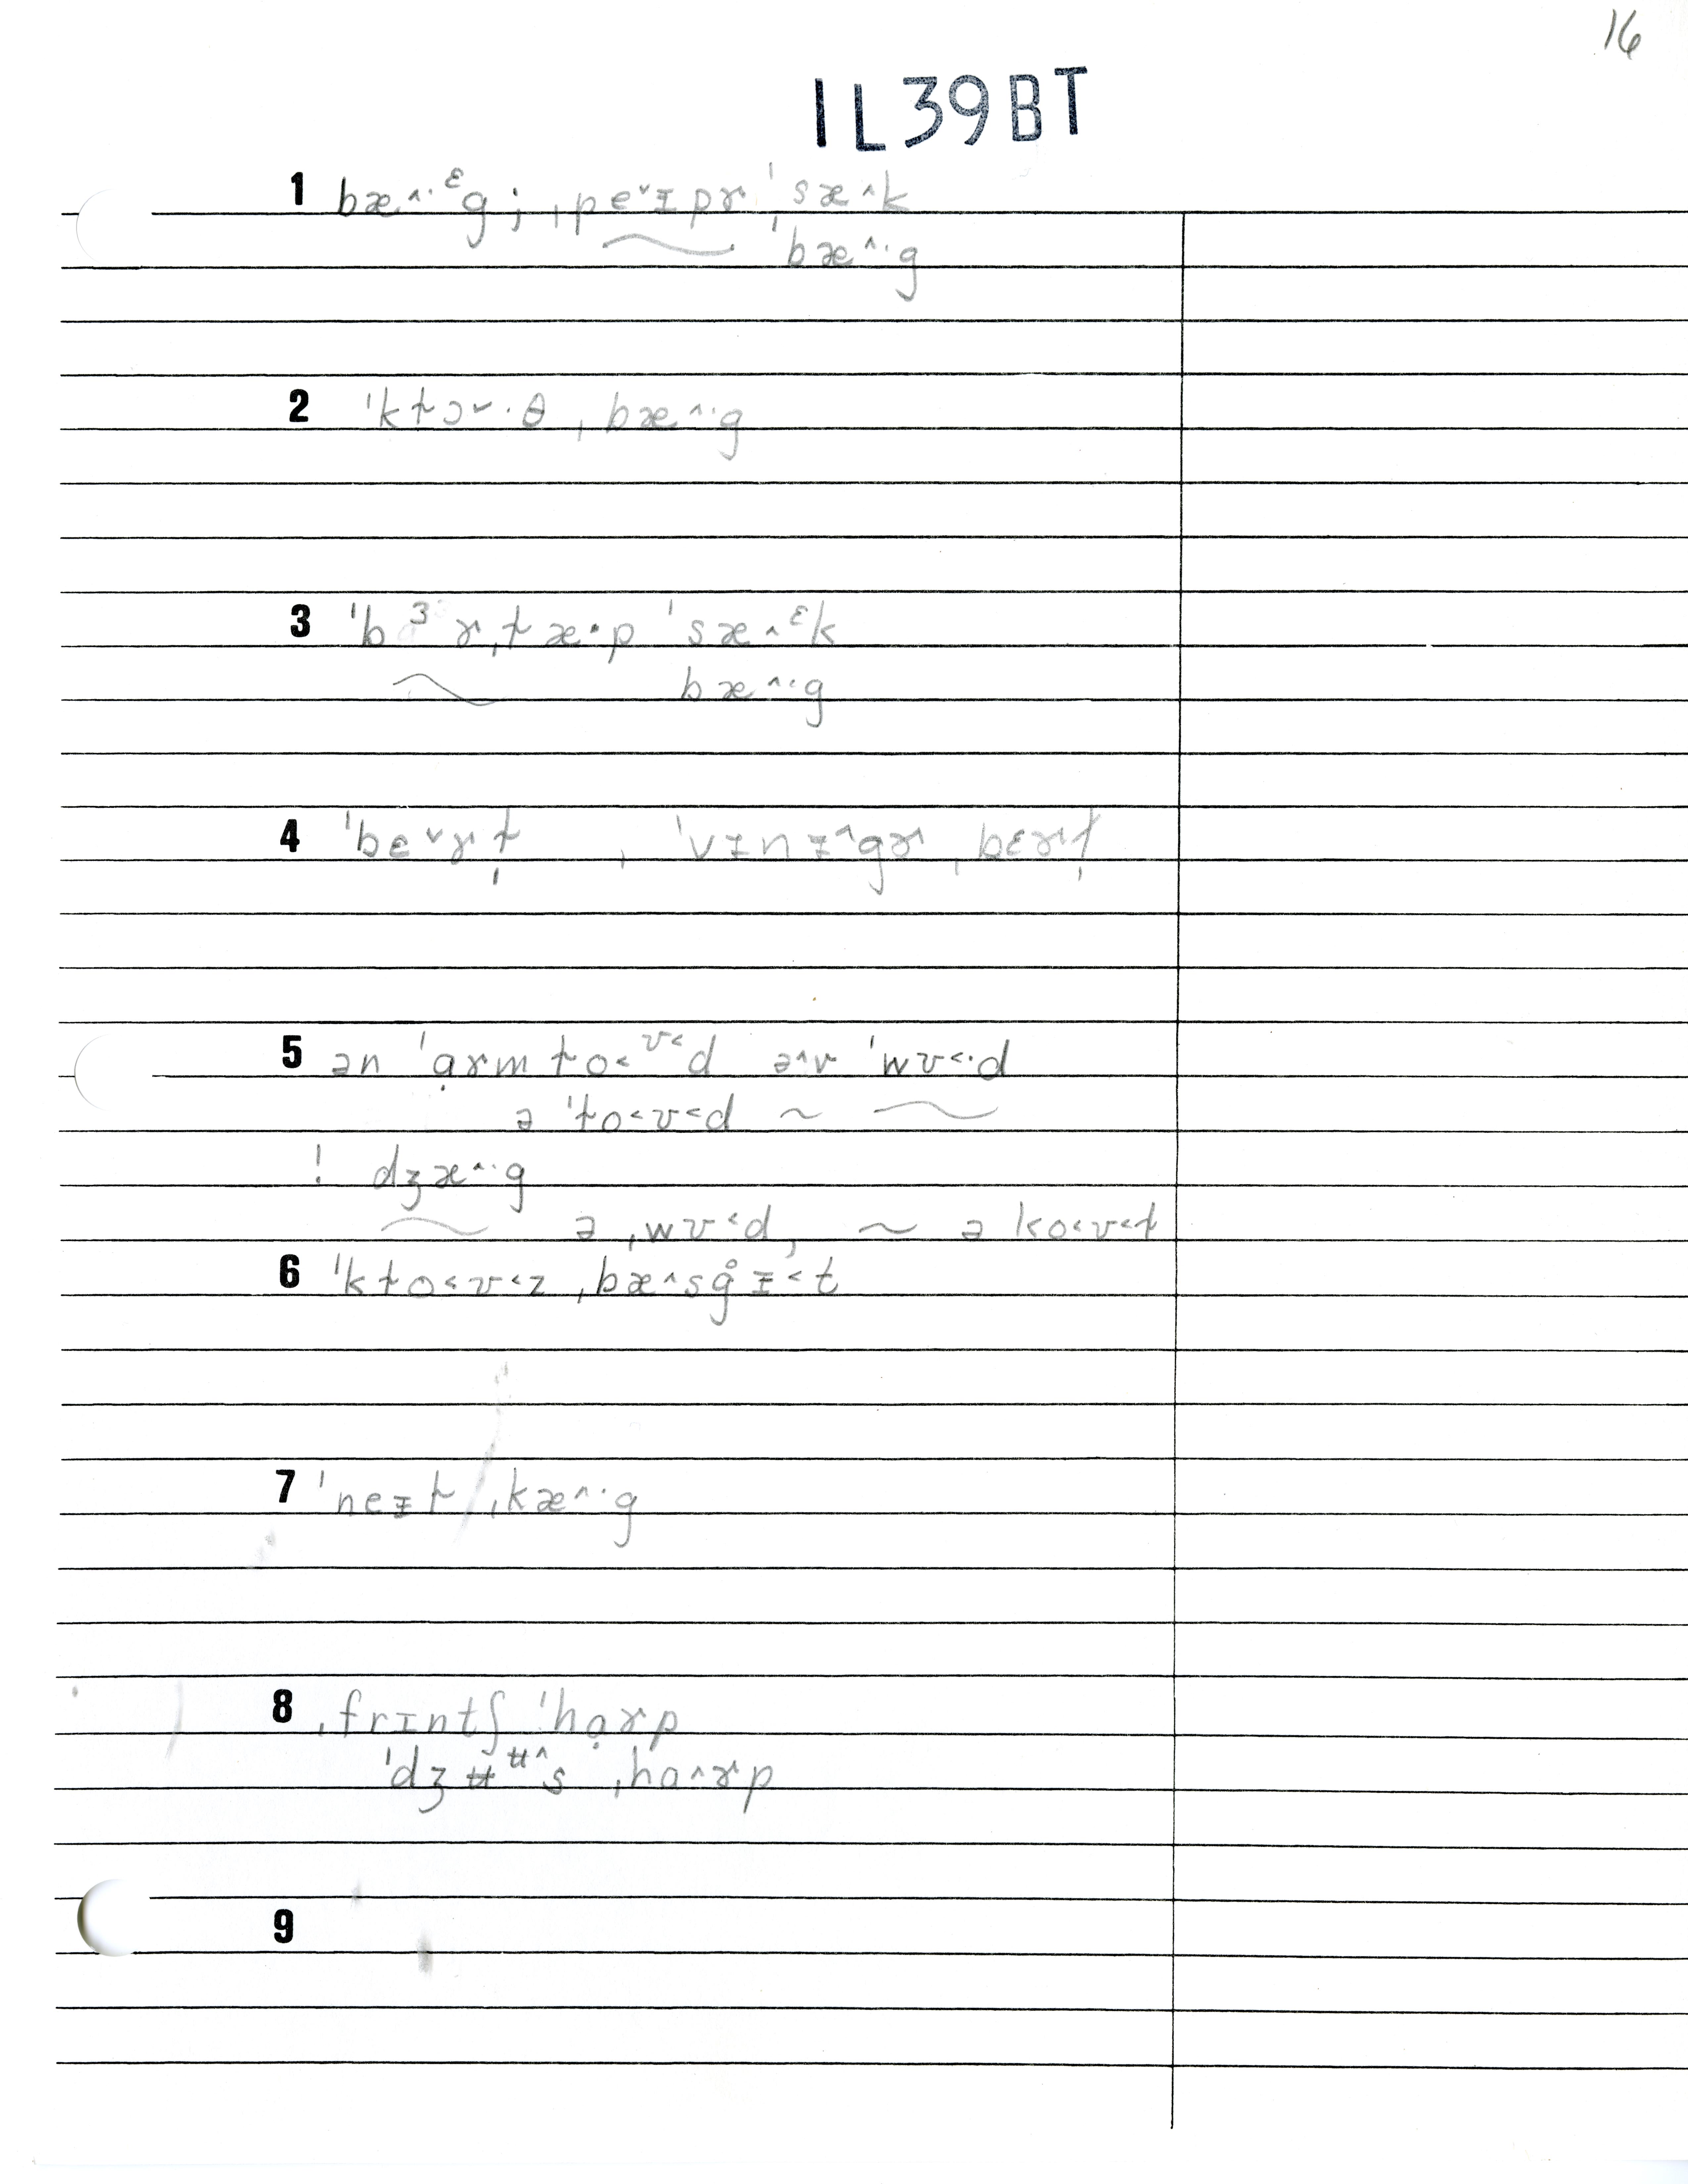 16
1L39BT
1 bæ^·ᵋg; ˌpe˅ɪpɚ ˈsæ^k
ˈbæ^·g
2 ˈkɫɔ˅·θ ˌbæ^·g
3 ˈbᶟɚˌɫæ·p ˈsæ^ᵋk
bæ^·g
4 ˈbɛ˅ɚɫ̩ , ˈvɪnɪ^gɚ ˌbɛɚɫ̩
5 ən ˈɑ̣ɚm ɫo˂ᶷ˂d ə^v ˈwʊ˂·d
ə ˈɫo˂ʊ˂d ~
! dʒæ^·g
ə ˌwʊ˂d, ~ ə ko˂ʊ˂ɫ
6 ˈkɫo˂ʊ˂z ˌbæ^sg̊ɪ˂t
7 ˈneɪɫ ˌkæ^·g
8 ˌfrɪntʃ ˈhɑ̣ɚp
ˈdʒʉᶶ^s ˌhɑ^ɚp
9